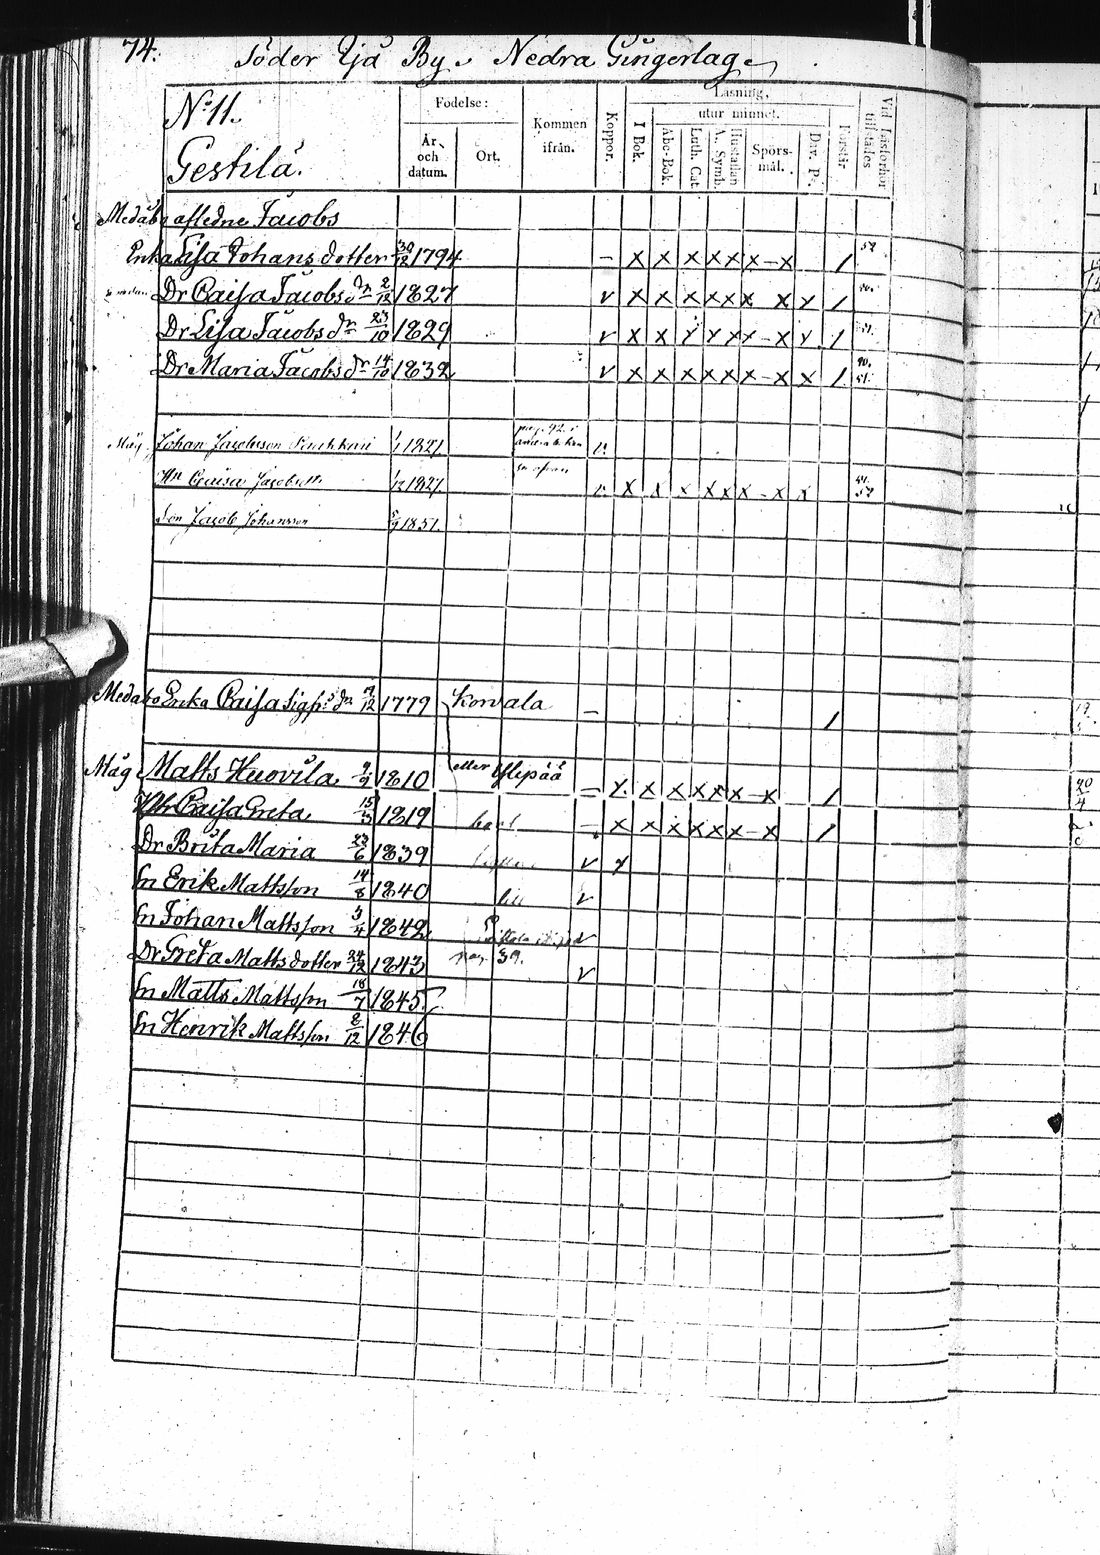 74.
Söder Ijå By. Nedra Gingerlage
No 11.
Gestilä.
Födelse:
År och datum.
Ort.
Kommen ifrån.
Koppor.
Läsning,
utur minnet.
I Bok.
Abc-Bok.
Luth. Cat.
A. Symb.
Hustaflan
Spörs-mål.
Dav. Ps.
Förstår.
Vid Läsförhör tillstädes
Medåbo afledne Jacobs
Enka Lisa Johans dotter 30/12 1794 – x x x x x x – x 1
Dr Caisa Jacobs dr 2/12 1827 v x x x x x x x x 1
Dr Lisa Jacobs dr 23/10 1829 v x x x x x x – x x 1
Dr Maria Jacobs dr 14/10 1832 v x x x x x x – x x 1
Måg Johan Jacobsson 1/1 1821 pag. 92 v.
Hu Caisa Jacobsdr 1/12 1827 v. x x x x x x – x x
Son Jacob Johansson 5/9 1851.
Medåbo Enka Caisa Sigfrs dr 1/12 1779 Korvala – 1
eller
Måg Matts Huovila 9/9 1810 – x x x x x x – x 1
Hu Caisa Greta 15/3 1819 – x x x x x x – x 1
Dr Brita Maria 23/6 1839 v x
Sn Erik Mattsson 14/8 1840 v
Sn Johan Mattsson 3/4 1842 v
Dr Greta Matts dotter 24/12 1843 pag. 39. v
Sn Matts Mattsson 18/7 1845
Sn Henrik Mattsson 8/12 1846